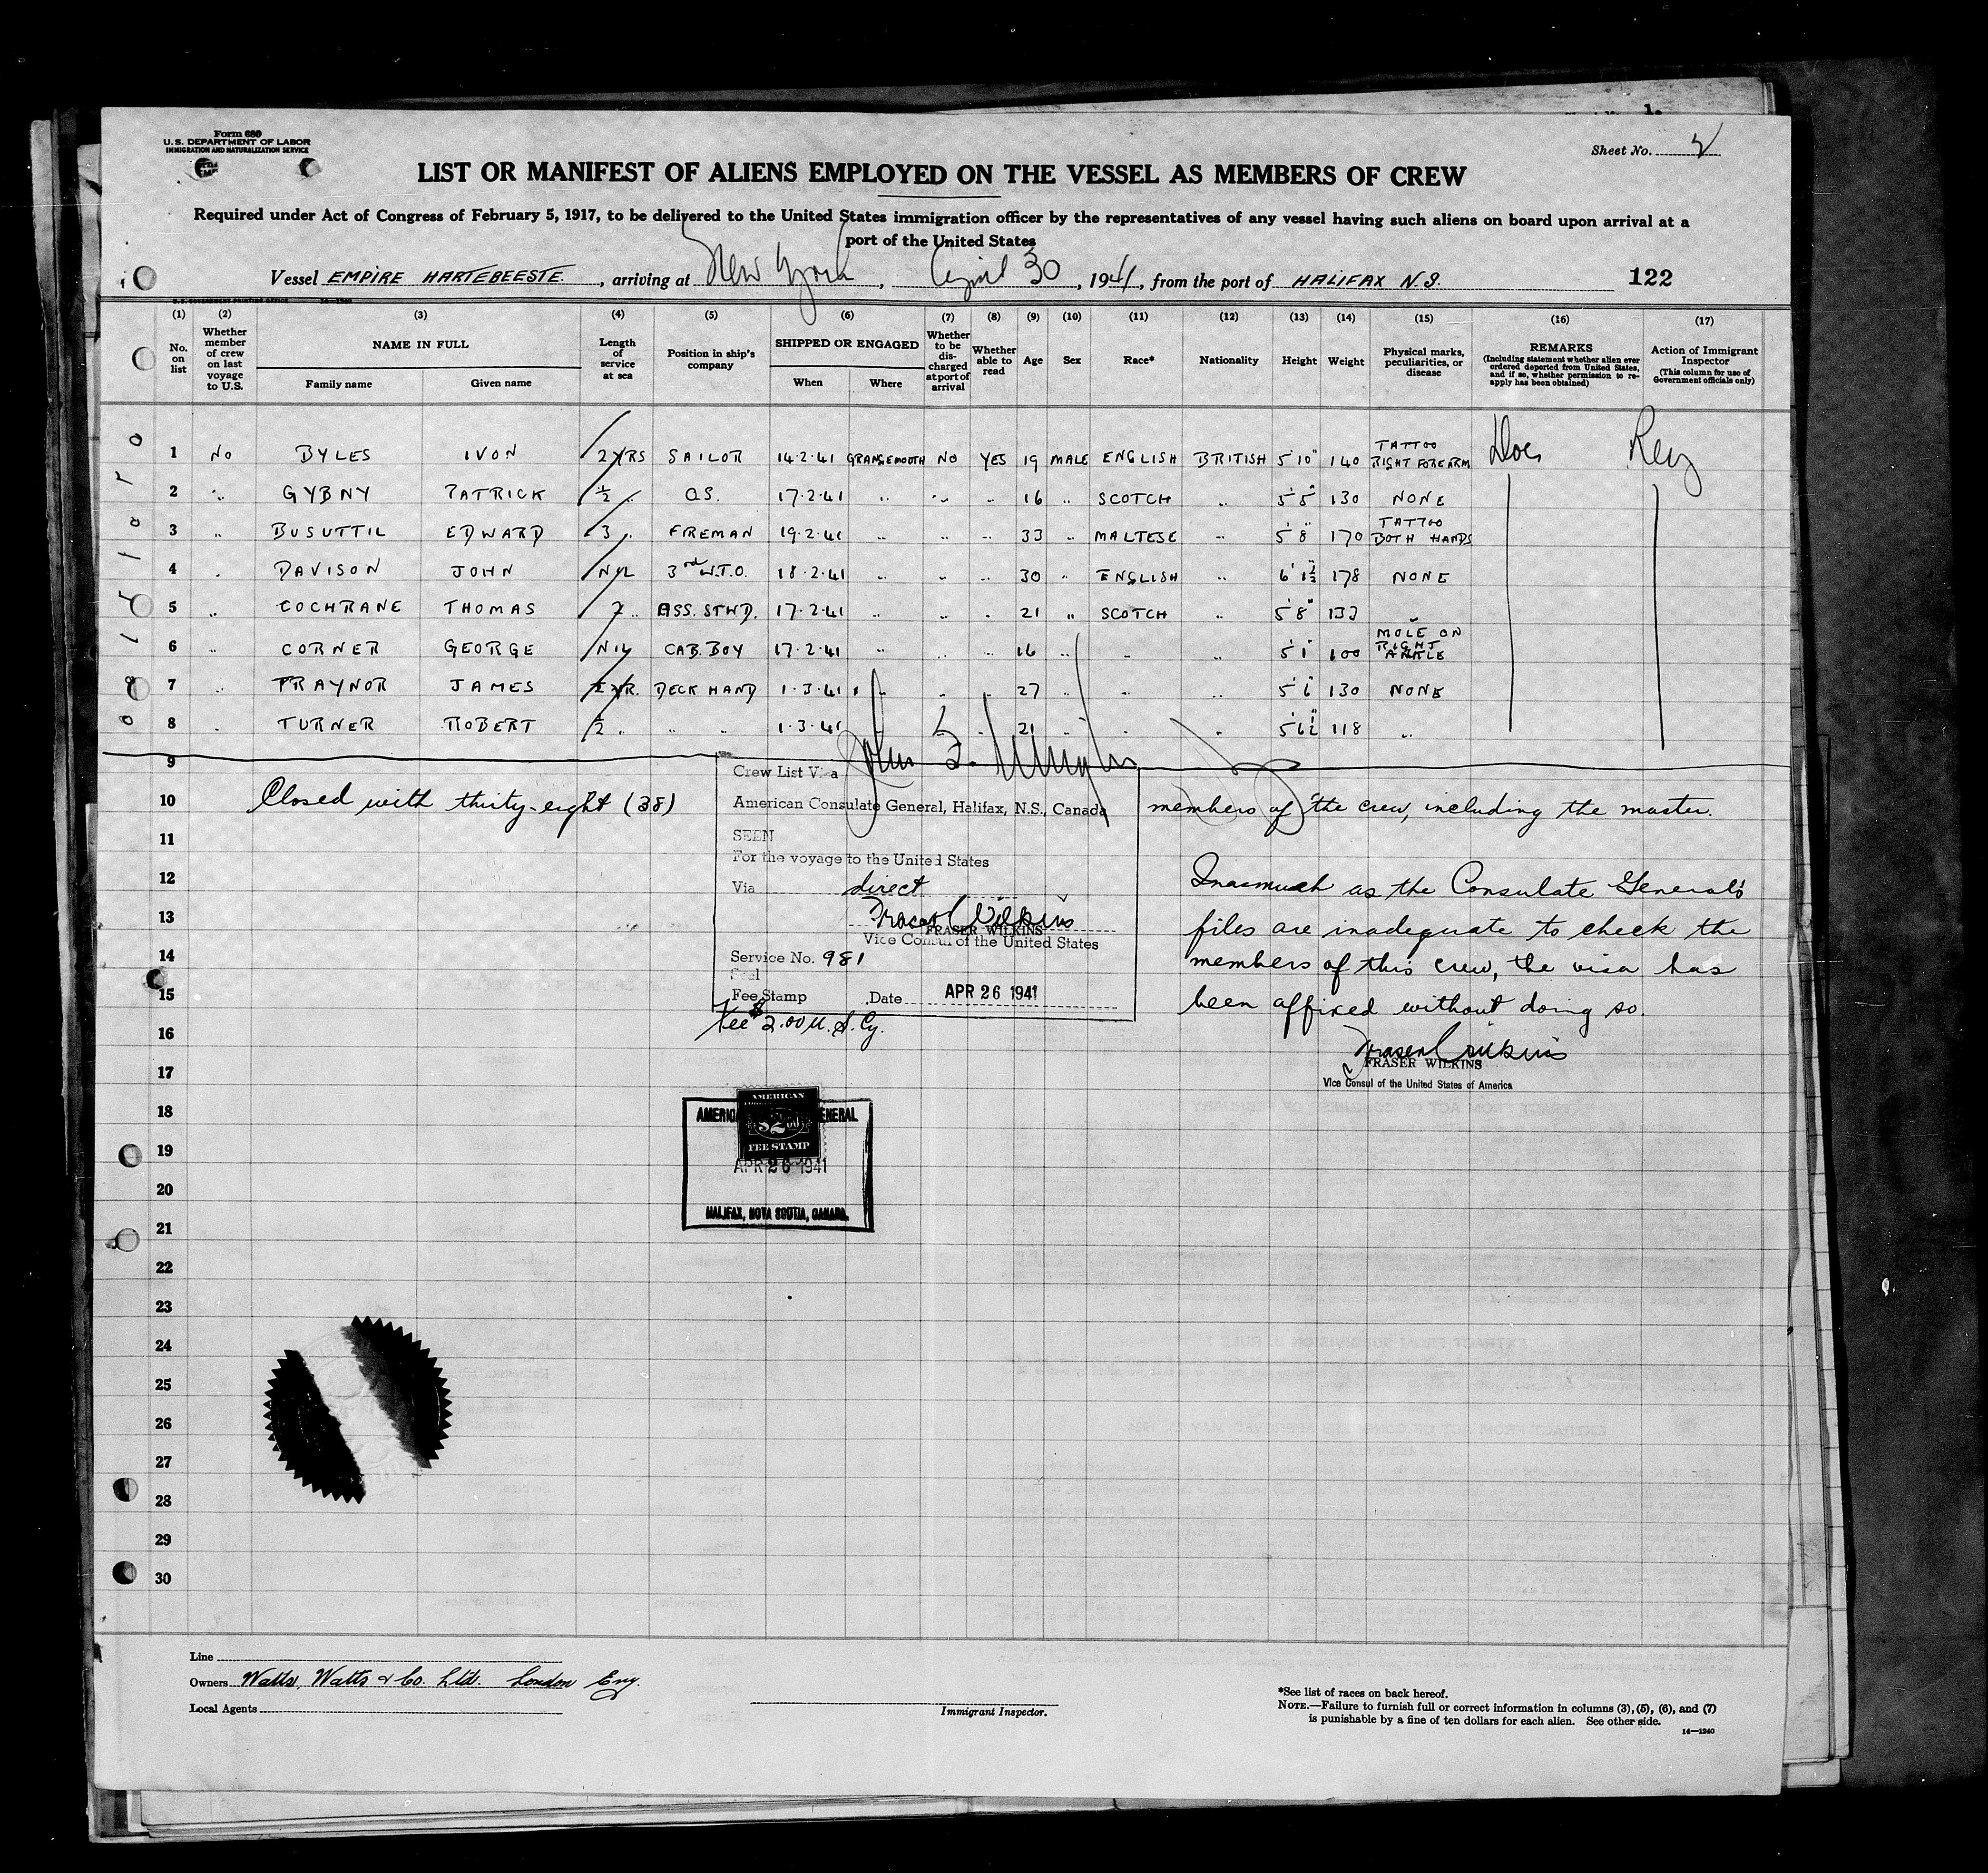 Form 689
U.S. DEPARTMENT OF LABOR
IMMIGRATION AND NATURALIZATION SERVICE
Sheet No. 2
LIST OR MANIFEST OF ALIENS EMPLOYED ON THE VESSEL AS MEMBERS OF CREW
Required under Act of Congress of February 5, 1917, to be delivered to the United States immigration officer by the representatives of any vessel having such aliens on board upon arrival at a
port of the United States
Vessel EMPIRE HARTEBEESTE, arriving at New York, April 30, 1941, from the port of HALIFAX N.S. 122
U.S. GOVERNMENT PRINTING OFFICE 14-1240
(1) (2) (3) (4) (5) (6) (7) (8) (9) (10) (11) (12) (13) (14) (15) (16) (17)
No. on list
Whether member of crew on last voyage to U.S.
NAME IN FULL
Family name Given name
Length of service at sea
Position in ship's company
SHIPPED OR ENGAGED
When Where
Whether to be discharged at port of arrival
Whether able to read
Age Sex Race* Nationality Height Weight
Physical marks, peculiarities, or disease
REMARKS
(Including statement whether alien ever ordered deported from United States, and if so, whether permission to reapply has been obtained)
Action of Immigrant Inspector
(This column for use of Government officials only)
1 No BYLES IVON 2 YRS SAILOR 14.2.41 GRANGEMOUTH NO YES 19 MALE ENGLISH BRITISH 5'10" 140 TATTOO RIGHT FOREARM
2 " GYBNY PATRICK ½ " O.S. 17.2.41 " " " 16 " SCOTCH " 5'5" 130 NONE
3 " BUSUTTIL EDWARD 3 " FIREMAN 19.2.41 " " " 33 " MALTESE " 5'8" 170 TATTOO BOTH HANDS
4 " DAVISON JOHN NIL 3rd W.T.O. 18.2.41 " " " 30 " ENGLISH " 6'1½" 178 NONE
5 " COCHRANE THOMAS 7 " ASS. STWD. 17.2.41 " " " 21 " SCOTCH " 5'8" "
6 " CORNER GEORGE NIL CAB. BOY 17.2.41 " " " 16 " " " 5'1" 100 MOLE ON RIGHT ANKLE
7 " TRAYNOR JAMES ½ YR. DECK HAND 1.3.41 " " " 27 " " " 5'6" 130 NONE
8 " TURNER ROBERT ½ " " " 1.3.41 " " " 21 " " " 5'6½" 118 "
9
10 Closed with thirty-eight (38) members of the crew, including the master.
11
12
13
14
15
16
17
18
19
20
21
22
23
24
25
26
27
28
29
30
Crew List Visa
American Consulate General, Halifax, N.S., Canada
SEEN
For the voyage to the United States
Via direct
Fraser Wilkins
FRASER WILKINS
Vice Consul of the United States
Service No. 981
Seal
Fee Stamp Date APR 26 1941
Fee $2.00 U.S. Cy.
Inasmuch as the Consulate General's
files are inadequate to check the
members of this crew, the visa has
been affixed without doing so.
Fraser Wilkins
FRASER WILKINS
Vice Consul of the United States of America
AMERICAN
$2.00
FEE STAMP
APR 26 1941
HALIFAX, NOVA SCOTIA, CANADA.
Line
Owners Watts, Watts & Co. Ltd. London Eng.
Local Agents
Immigrant Inspector.
*See list of races on back hereof.
NOTE.—Failure to furnish full or correct information in columns (3), (5), (6), and (7)
is punishable by a fine of ten dollars for each alien. See other side.
14—1240